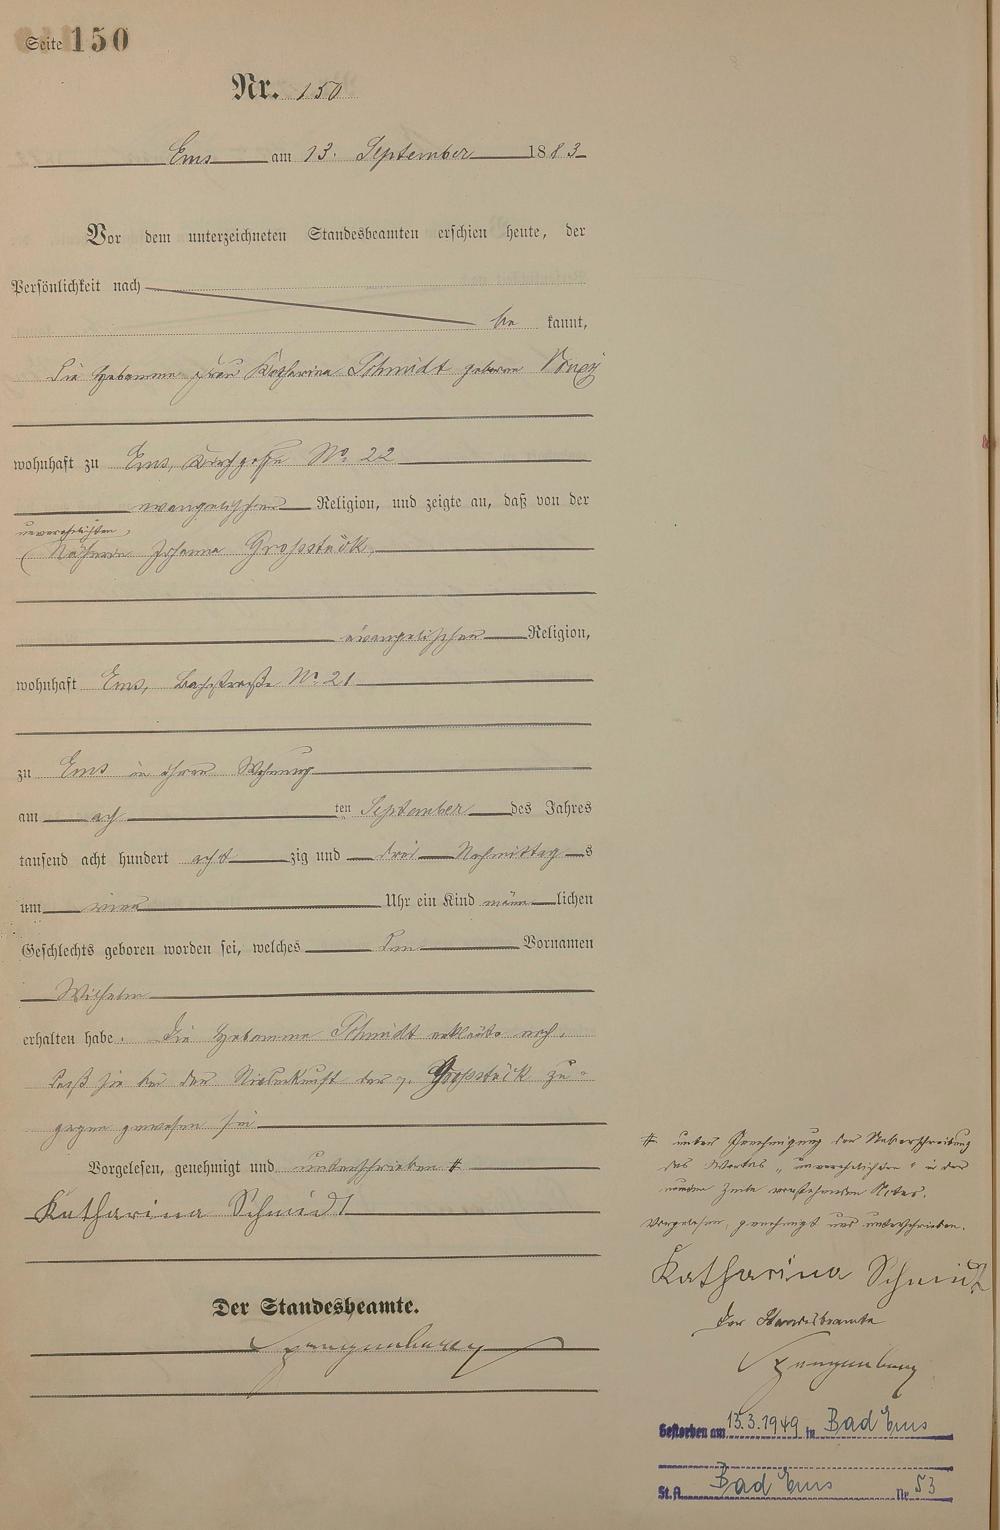 Seite 150
Nr. 150
Ems am 13. September 1883
Vor dem unterzeichneten Standesbeamten erschien heute, der
Persönlichkeit nach
be kannt,
die Hebamme Frau Katharina Schmidt geborene
wohnhaft zu Ems, Kirchgasse No. 22
evangelischer Religion, und zeigte an, daß von der
unverehelichten
Näherin Johanna Großstück,
evangelischer Religion,
wohnhaft Ems, Bachstraße No. 21
zu Ems in ihrer Wohnung
am ach ten September des Jahres
tausend acht hundert acht zig und drei Nachmittag s
um vier Uhr ein Kind männ lichen
Geschlechts geboren worden sei, welches den Vornamen
Wilhelm
erhalten habe. Die Hebamme Schmidt erklärte noch,
daß sie bei der Niederkunft der p. Großstück zu-
gegen gewesen sei
Vorgelesen, genehmigt und unterschrieben #
Katharina Schmidt
Der Standesbeamte.
Spangenberg
# unter Genehmigung der Ueberschreibung
des Wortes „unverehelichten" in der
neunten Zeile vorstehenden Actes.
Vorgelesen, genehmigt und unterschrieben.
Katharina Schmidt
Der Standesbeamte
Spangenberg
Gestorben am 13.3.1949 in Bad Ems
St.A. Bad Ems Nr. 53